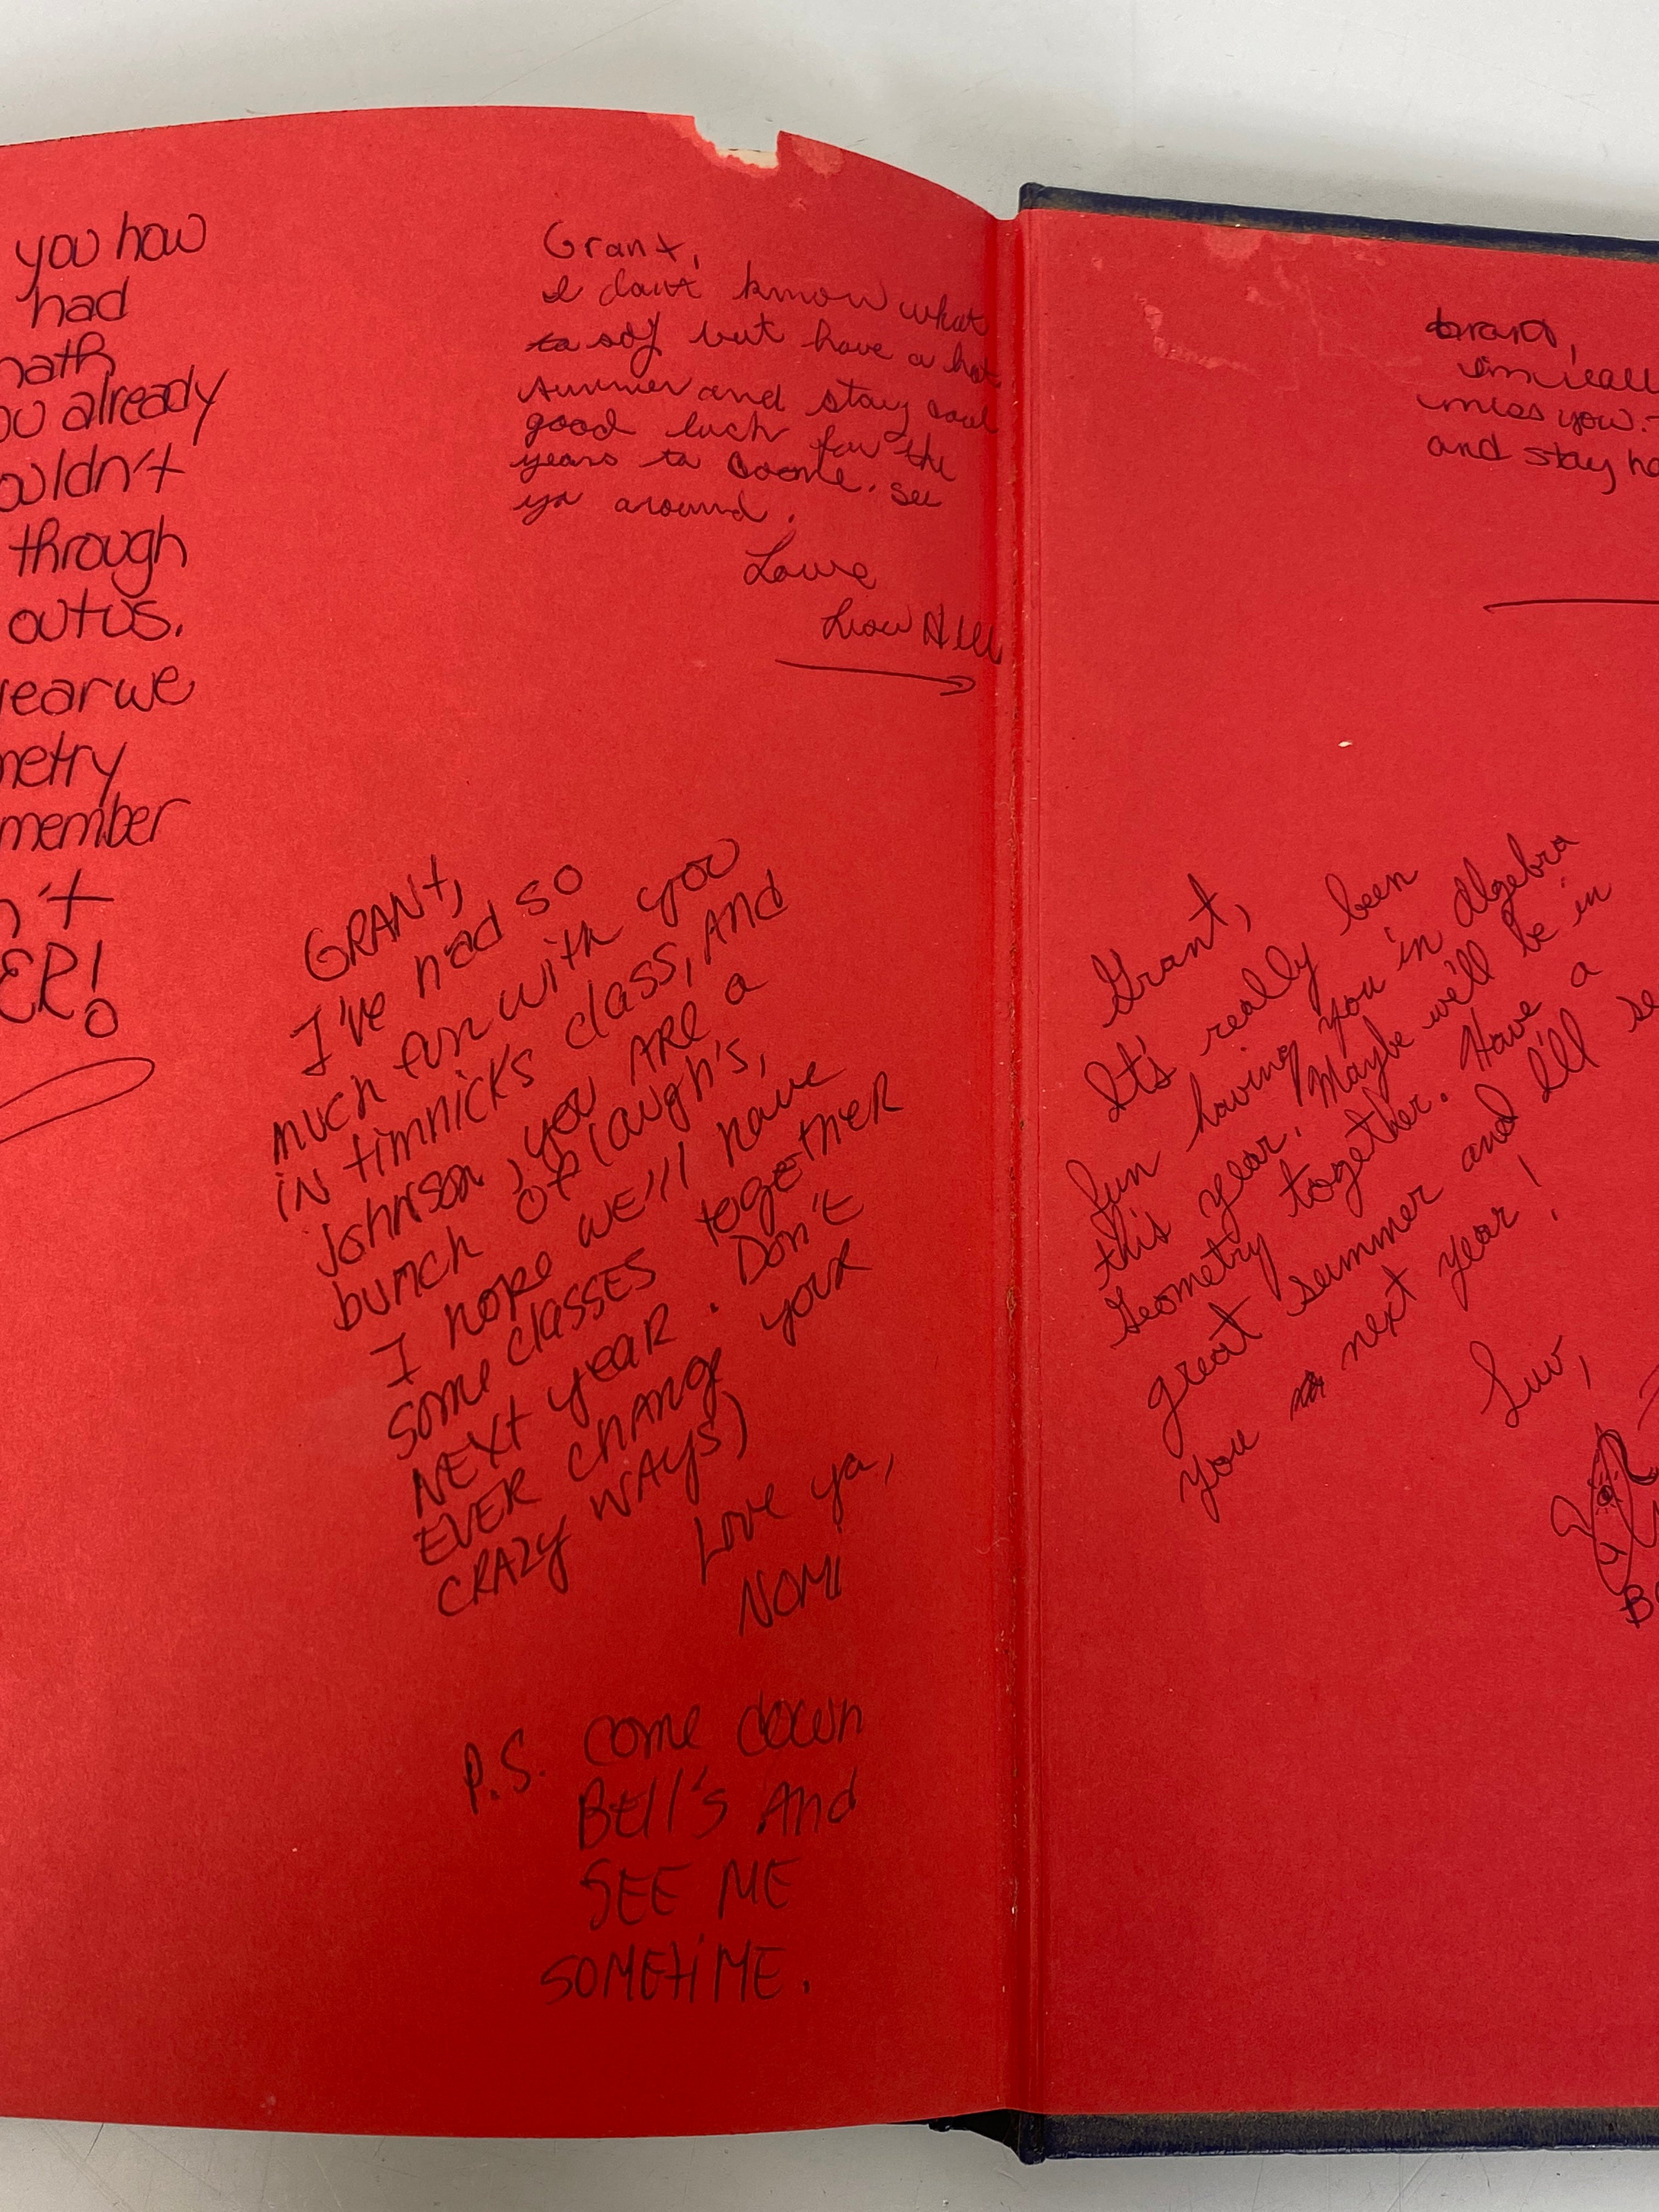 you how
had
math
ou already
ouldn't
through
out us.
year we
metry
member
n't
ER!
Grant,
I don't know what
to say but have a hot
summer and stay cool
good luck for the
years to come. see
ya around.
Love
GRANt,
I've had so
much fun with you
in timnicks class, And
Johnson, you ARE a
bunch of laugh's,
I hope we'll have
some classes together
NEXt year. Don't
EVER change your
CRAZY WAYS)
Love ya,
NOMi
P.S. come down
Bell's And
SEE ME
SOMEtiME.
Grant,
miss you.
and stay
Grant,
It's really been
fun having you in Algebra
this year. Maybe we'll be in
Geometry together. Have a
great summer and I'll se
you next year!
Luv,